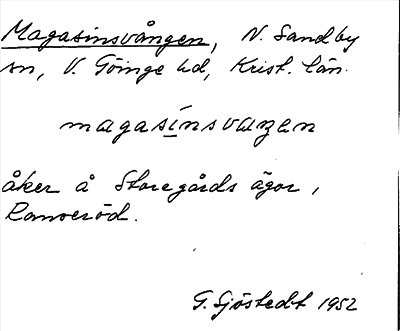 Magasinsvången, N. Sandby
sn, V. Göinge hd, Krist. län.
magasinsvaŋen
åker å Storegårds ägor,
Ranseröd.
G. Sjöstedt 1952